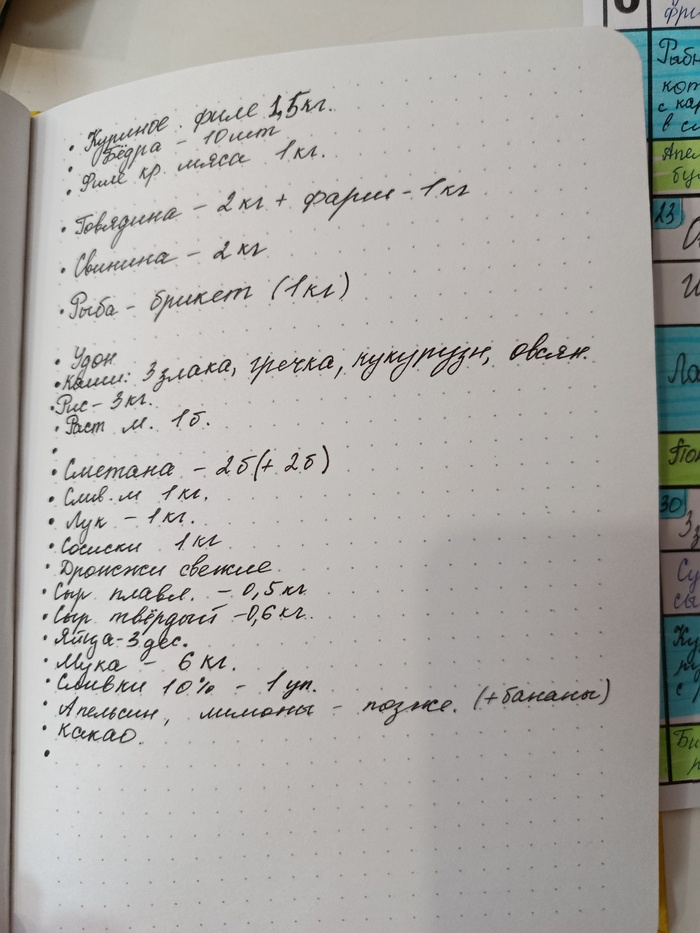 • Куриное филе 1,5кг.
• Бёдра - 10шт
• Филе кр. мяса 1кг.
• Говядина - 2кг + фарш - 1кг
• Свинина - 2кг
• Рыба - брикет (1кг)
• Удон
• Каши: 3 злака, гречка, кукурузн, овсян.
• Рис - 3кг.
• Раст м. 1б.
•
• Сметана - 2б (+ 2б)
• Слив. м 1кг.
• Лук - 1кг.
• Сосиски 1кг
• Дрожжи свежие
• Сыр плавл. - 0,5кг
• Сыр твёрдый - 0,6кг.
• Яйца - 3 дес.
• Мука - 6кг.
• Сливки 10% - 1уп.
• Апельсин, лимоны - позже. (+бананы)
• Какао.
•
фри
Рыбн
кот
с кар
в сл
Апел
бул
23
Ла
30
Зз
Су
сы
Ку
с р